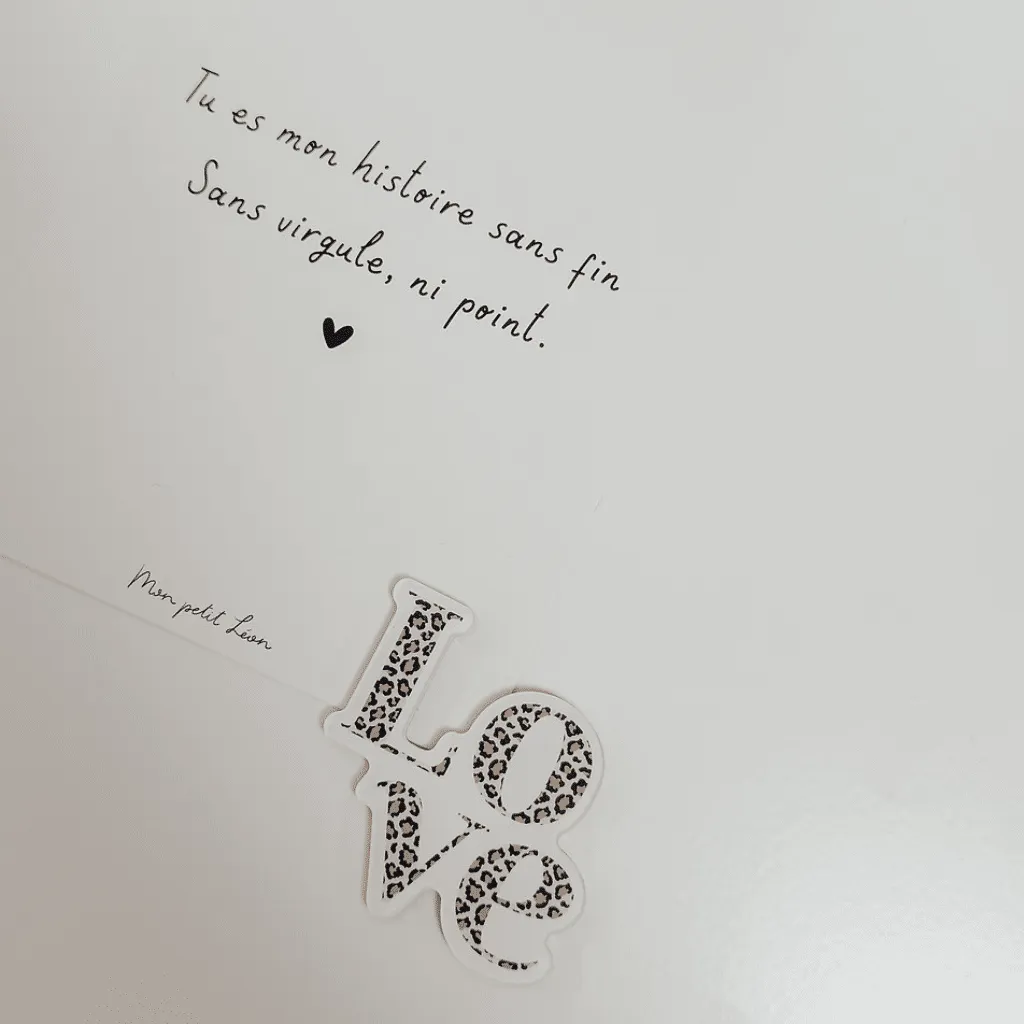 Tu es mon histoire sans fin
Sans virgule, ni point.
Mon petit Léon
Lo
ve